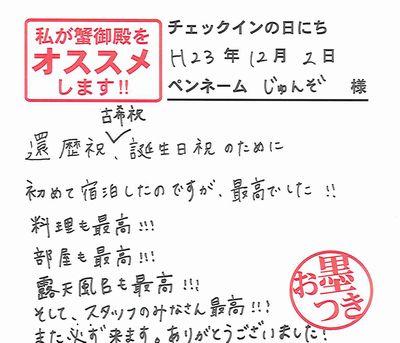 私が蟹御殿を
オススメ
します!!
チェックインの日にち
H23年12月2日
ペンネーム じゅんぞ 様
古希祝
還歴祝、誕生日祝のために
初めて宿泊したのですが、最高でした!!
料理も最高!!!
部屋も最高!!!
露天風呂も最高!!!
そして、スタッフのみなさん最高!!!
また必ず来ます。ありがとうございました!
お墨つき